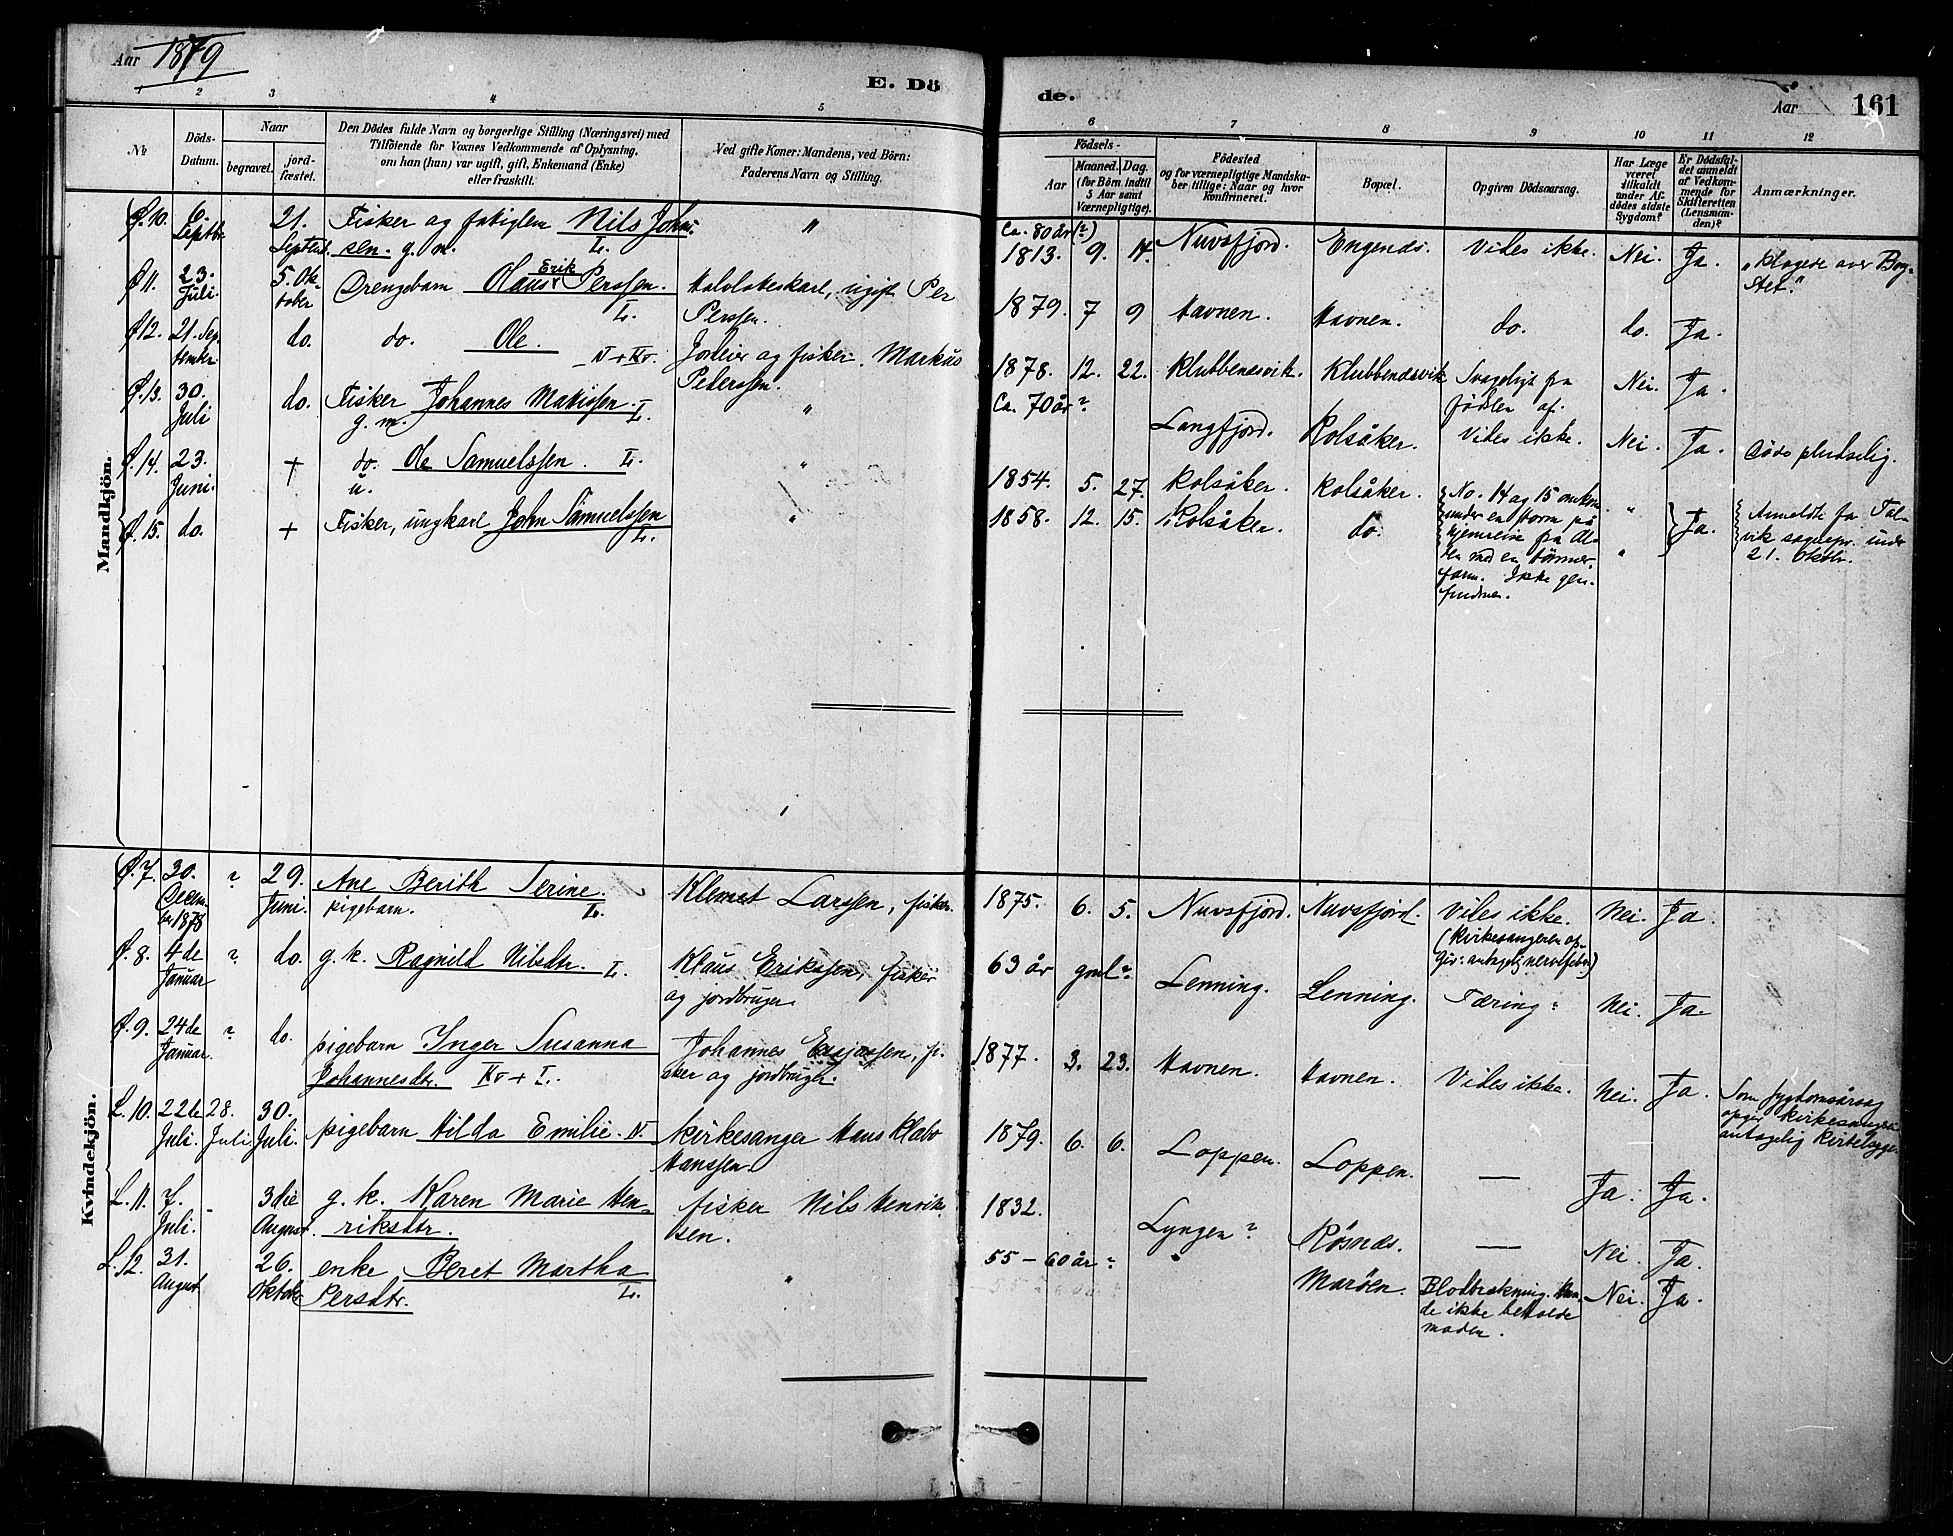 Aar 1879
E. Dö
de.
Aar
161
1 2 3 4 5 6 7 8 9 10 11 12
No.
Döds-Datum.
Naar
begravet.
jord-fæstet.
Den Dödes fulde Navn og borgerlige Stilling (Næringsvei) med
Tilföiende for Voxnes Vedkommende af Oplysning,
om han (hun) var ugift, gift, Enkemand (Enke)
eller fraskilt.
Ved gifte Koner: Mandens, ved Börn:
Faderens Navn og Stilling.
Födsels-
Aar
Maaned. Dag.
(for Börn indtil
5 Aar samt
Værnepligtige).
Födested
og for værnepligtige Mandska-
ber tillige: Naar og hvor
konfirmeret.
Bopæl.
Opgiven Dödsaarsag.
Har Læge
været
tilkaldt
under Af-
dödes sidste
Sygdom?
Er Dödsfal-
det anmeldt
af Vedkom-
mende for
Skifteretten
(Lensman-
den)?
Anmærkninger.
Mandkjön.
Ø. 10. 6 Septbr. 21. Septbr. Fisker og fatiglem Nils Johns-
sen. g. m. L. " ca. 80 år (?) 1813. 9. 17. Nuvsfjord. Engenæs. Vides ikke. Nei. Ja. "Klagede over Bry-
stet."
Ø. 11. 23. Juli. 5. Ok-
tober Drengebarn Olaus Erik Perssen. L. ugift Per
Perssen. 1879. 7 9 Havnen. Havnen. do. do. Ja.
Ø. 12. 21. Sep-
tember do. do. Ole. N + Kv. Jordeier og fisker Markus
Pederssen. 1878. 12. 22. Klubbenesvik. Klubbenæsvik Svageligt fra
födslen af. Nei. Ja.
Ø. 13. 30. Juli do. Fisker Johannes Matissen. L.
g. m. " Ca. 70 år? Langfjord. Kolsåker. Vides ikke. Nei. Ja. Döde pludselig.
Ø. 14. 23. Juni. + do. Ole Samuelssen. L.
u. " 1854. 5. 27. Kolsåker. Kolsåker. No. 14 og 15 omkom
under en storm på
hjemreise fra Al-
ten med en tömmer-
farm. Ikke gen-
fundne. "
Ø. 15. do. + Fisker, ungkarl John Samuelssen L. " 1858. 12. 15. Kolsåker. do. " Ja. Anmeldt fra Tal-
vik sognepr. under
21. Oktbr.
Kvindekjön.
Ø. 7. 30. Decem-
br 1878 ? 29. Juni. Ane Berith Serine. L.
pigebarn. Klemet Larssen, fisker. 1875. 6. 5. Nuvsfjord. Nuvsfjord. Vides ikke. Nei. Ja.
(Kirkesangeren op-
giv: antagelig nervefeber)
Ø. 8. 4de Januar ? do. g. k. Ragnild Nilsdtr. L. Klaus Erikssen, fisker
og jordbruger. 63 år gml? Lenning. Lenning. Tæring? Nei. Ja.
Ø. 9. 24de Januar. ? do. pigebarn Inger Susanna
Johannesdtr. Kv + L. Johannes Esajassen, fi-
sker og jordbruger. 1877. 3. 23. Havnen. Havnen. Vides ikke. Nei. Ja. Som sygdomsårsag
opgir kirkesangeren
antagelig
L. 10. 22de Juli. 28. Juli 30. Juli. pigebarn Hilda Emilie. N. Kirkesanger Hans Klæbo
Hanssen. 1879. 6. 6. Loppen. Loppen. — Ja. Ja.
L. 11. 7. Juli. - 3die August. g. k. Karen Marie Hen-
riksdtr. fisker Nils Henrik-
sen. 1832. Lyngen? Rösnæs. — Nei. Ja.
L. 12. 31. August 26. Oktober enke Beret Martha
Persdtr. L. " 55 – 60 år? " Maröen. Blodbrækning. Kun-
de ikke beholde
maden. Nei. Ja.